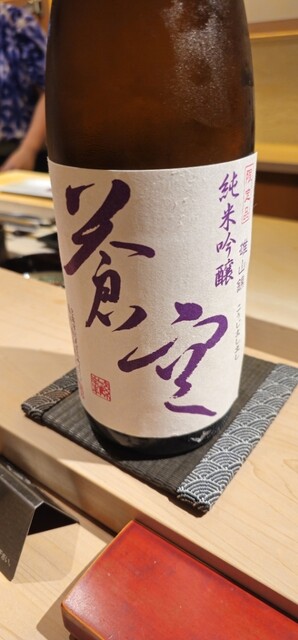 限定品
純米吟醸
雄山錦
蒼空